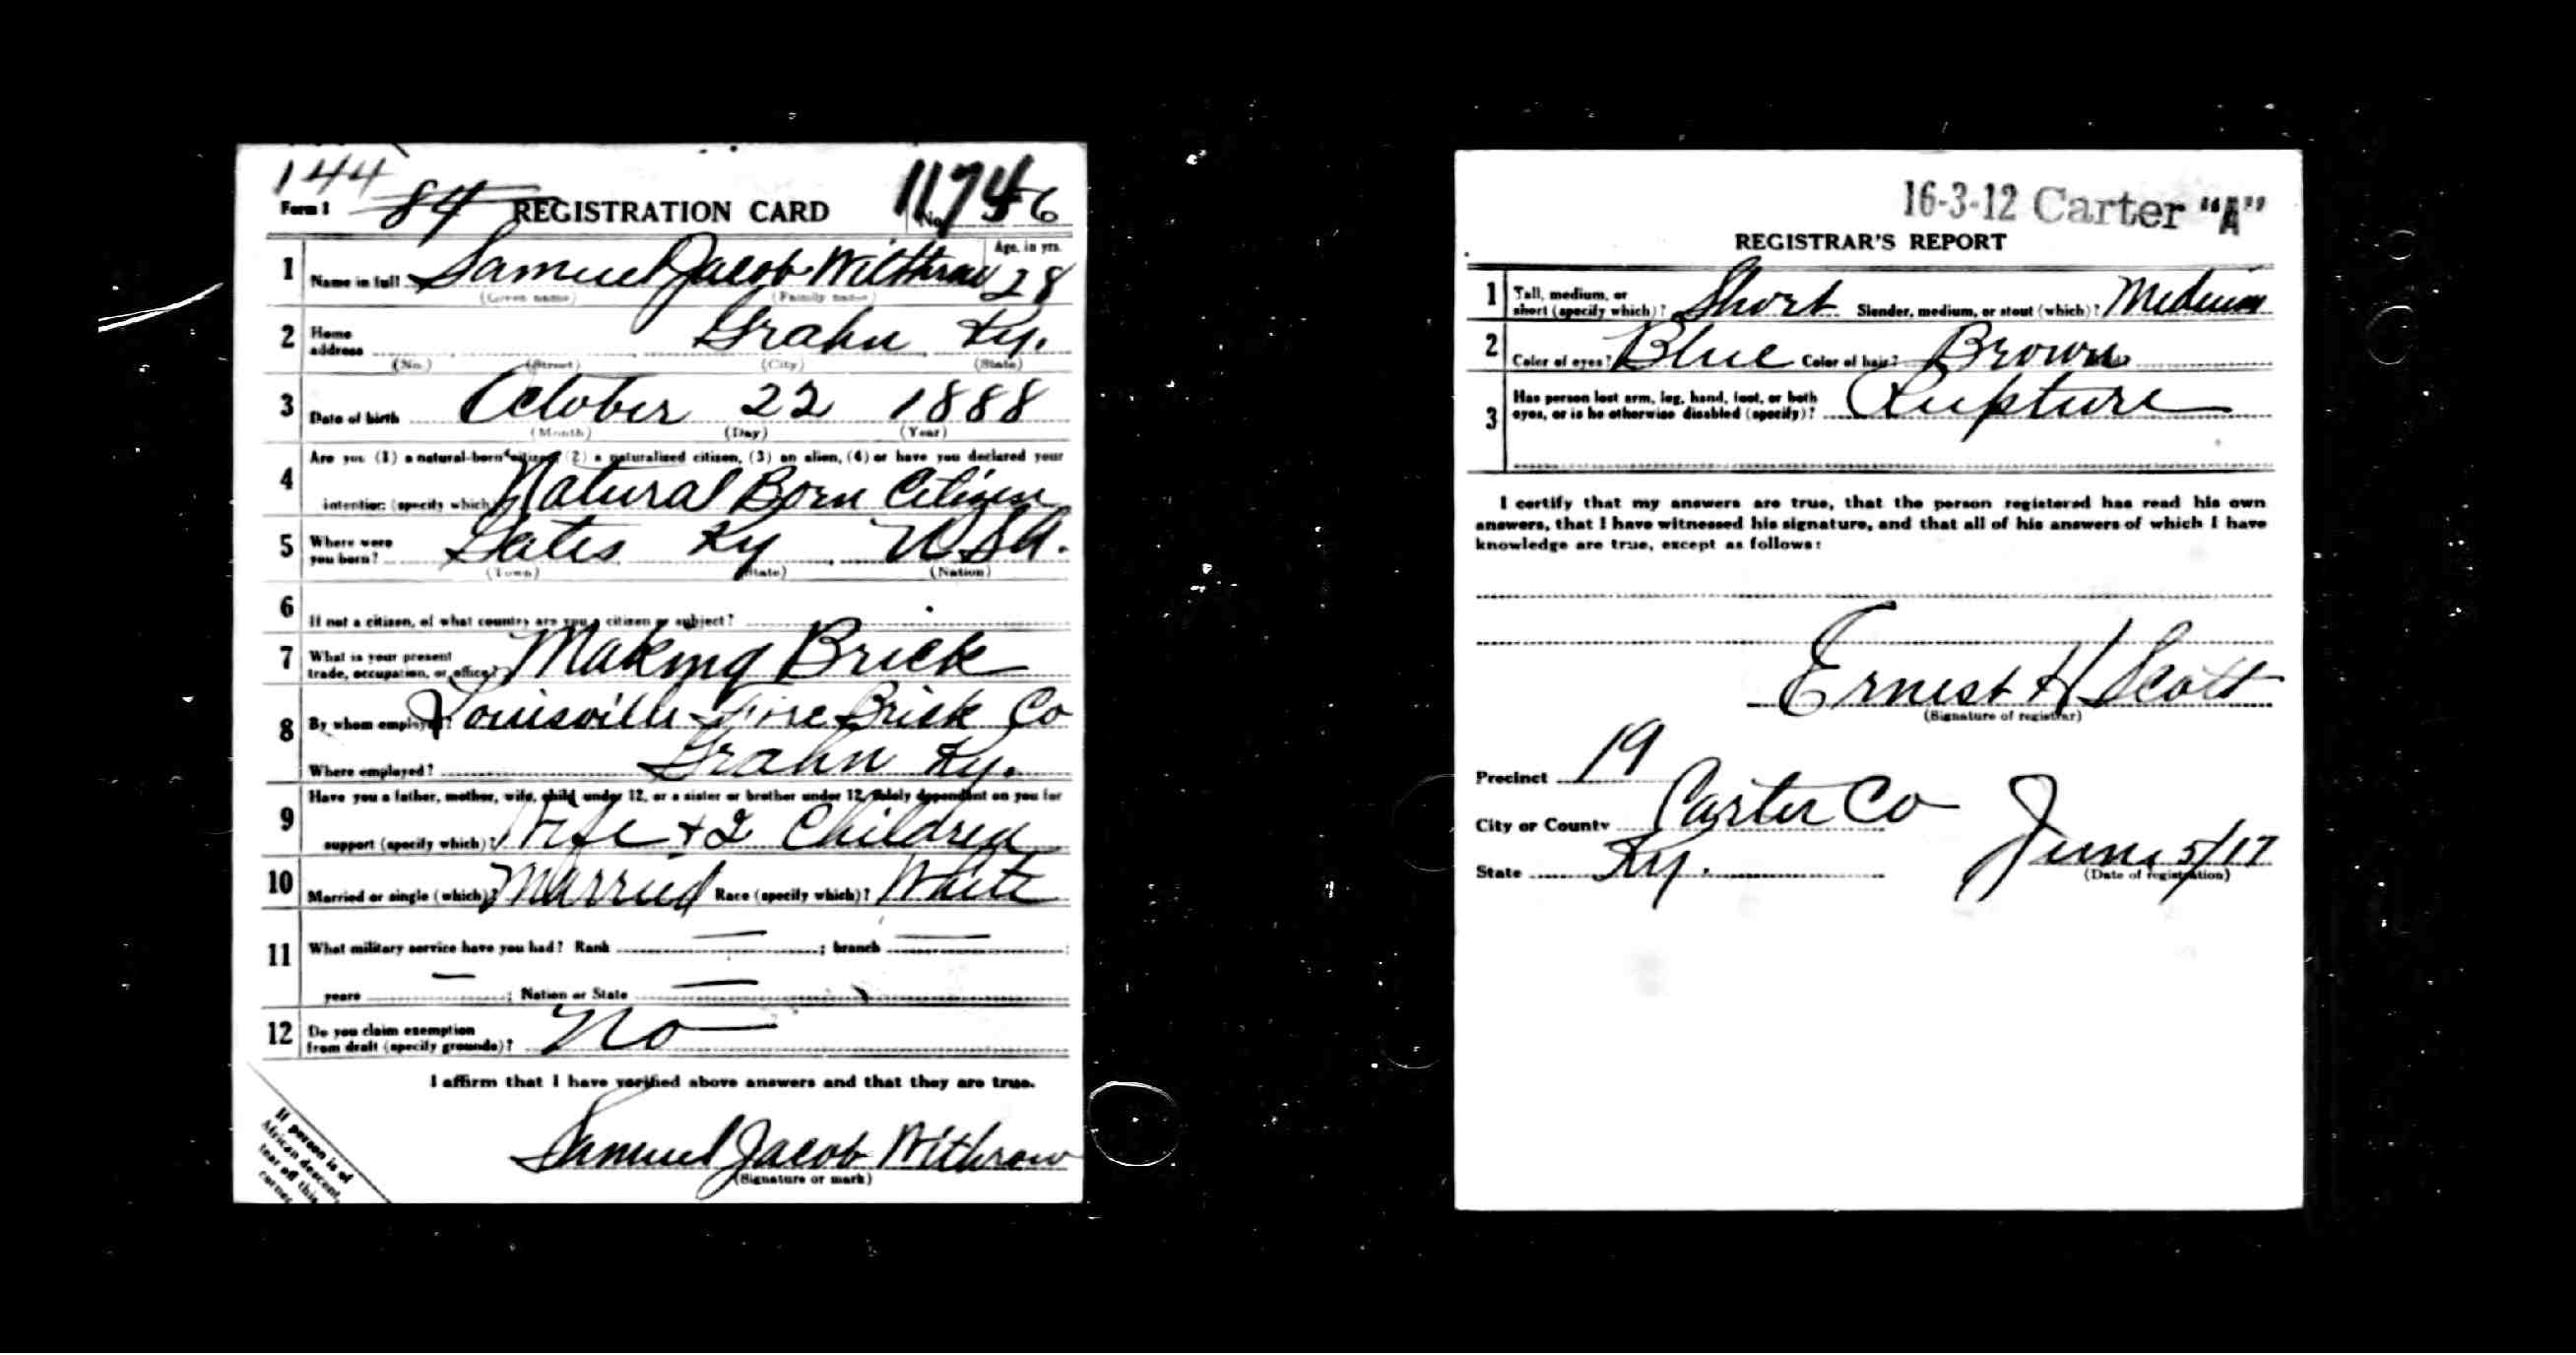 144
Form 1 84 REGISTRATION CARD No. 46
1 Name in full Samuel Jacob Withrow Age, in yrs. 28
(Given name) (Family name)
2 Home address Grahn Ky.
(No.) (Street) (City) (State)
3 Date of birth October 22 1888
(Month) (Day) (Year)
4 Are you (1) a natural-born citizen, (2) a naturalized citizen, (3) an alien, (4) or have you declared your
intention (specify which)? Natural Born Citizen
5 Where were you born? Gates Ky USA.
(Town) (State) (Nation)
6 If not a citizen, of what country are you a citizen or subject?
7 What is your present trade, occupation, or office? Making Brick
8 By whom employed? Louisville Fire Brick Co
Where employed? Grahn Ky.
9 Have you a father, mother, wife, child under 12, or a sister or brother under 12, solely dependent on you for
support (specify which)? Wife + 2 Children
10 Married or single (which)? Married Race (specify which)? White
11 What military service have you had? Rank — ; branch — ;
years — ; Nation or State —
12 Do you claim exemption from draft (specify grounds)? No
I affirm that I have verified above answers and that they are true.
Samuel Jacob Withrow
(Signature or mark)
If person is of
African descent,
tear off this
corner.
16-3-12 Carter "A"
REGISTRAR'S REPORT
1 Tall, medium, or short (specify which)? Short Slender, medium, or stout (which)? Medium
2 Color of eyes? Blue Color of hair? Brown
3 Has person lost arm, leg, hand, foot, or both
eyes, or is he otherwise disabled (specify)? Rupture
I certify that my answers are true, that the person registered has read his own
answers, that I have witnessed his signature, and that all of his answers of which I have
knowledge are true, except as follows:
Ernest H Scott
(Signature of registrar)
Precinct 19
City or County Carter Co
State Ky. June 5/17
(Date of registration)